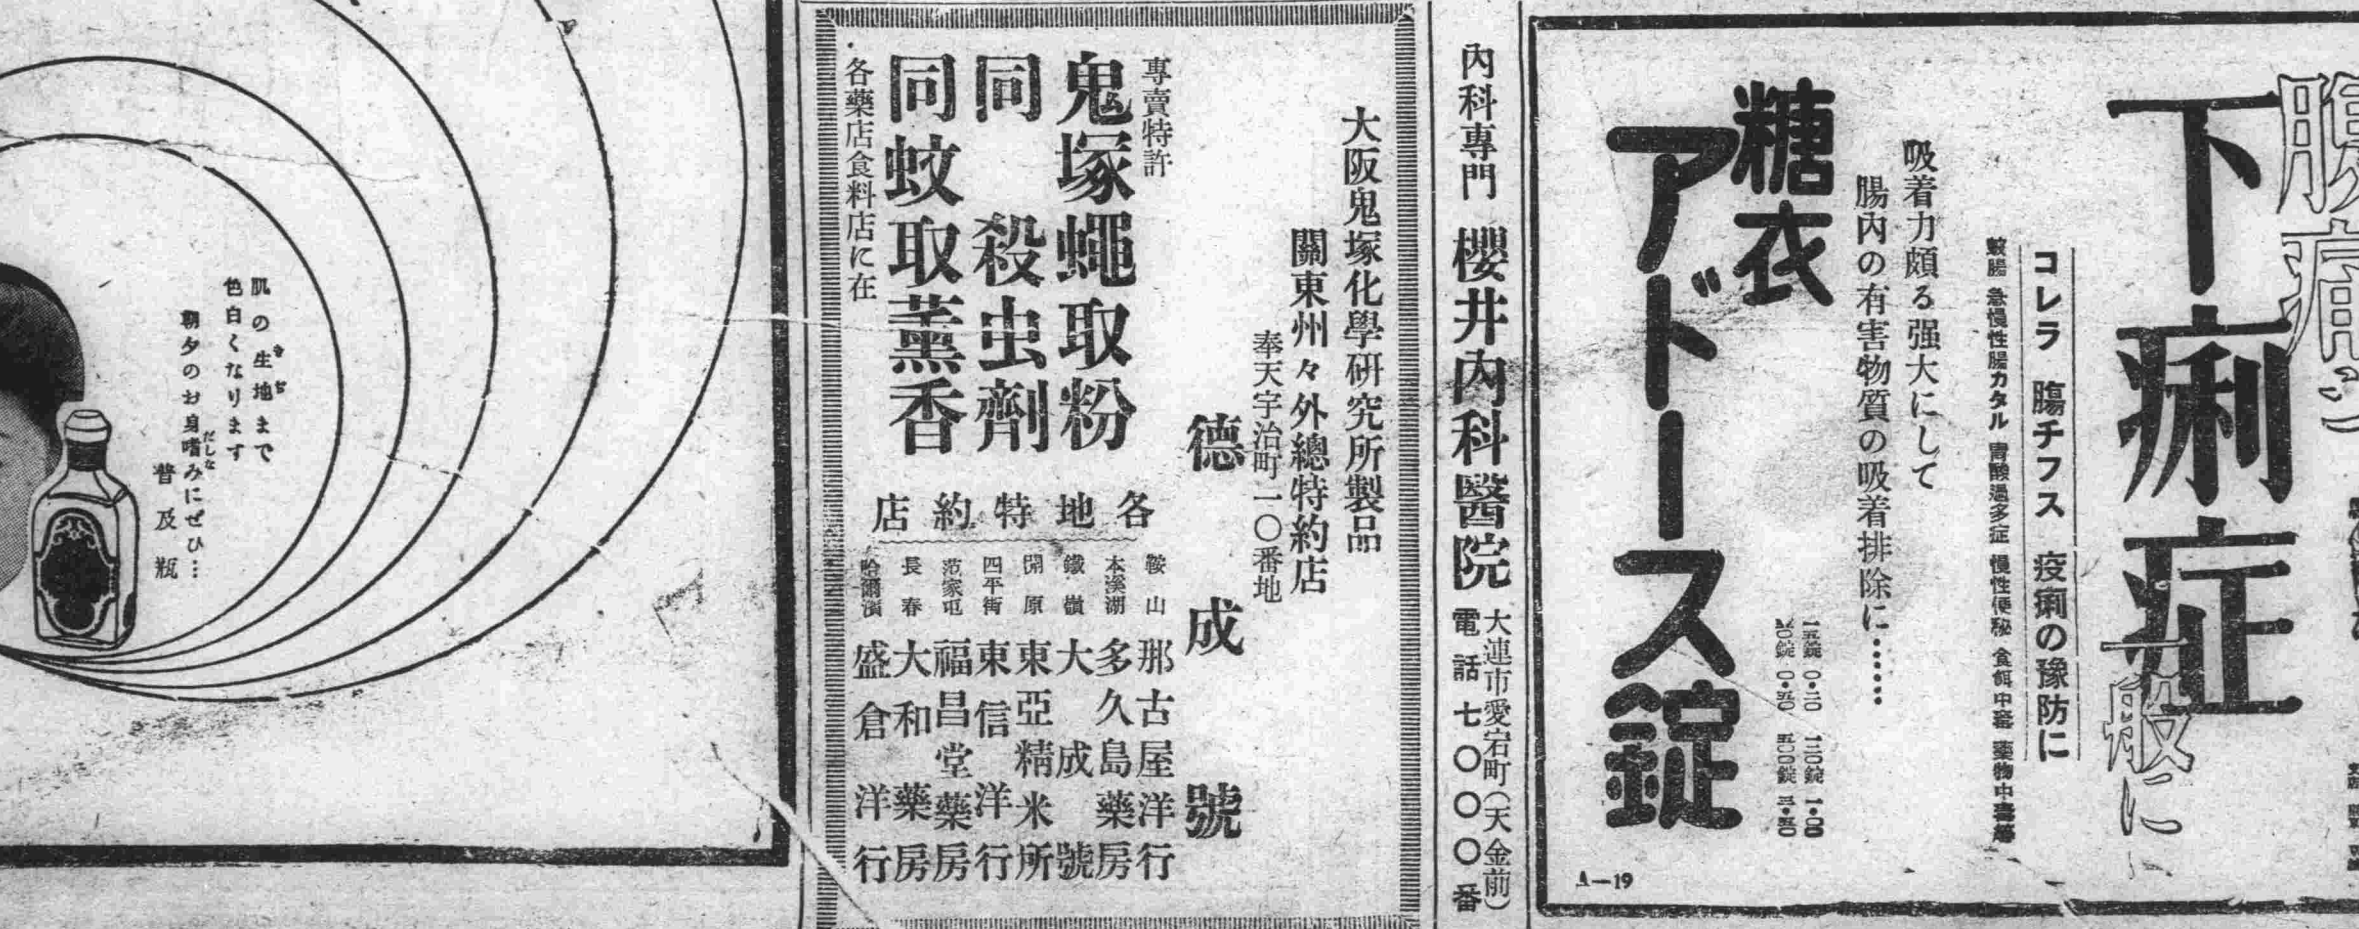 腹痛に
下痢症
一般に
コレラ 腸チフス 疫痢の豫防に
急慢性腸カタル 胃酸過多症 慢性便秘 食餌中毒 藥物中毒等
吸着力頗る强大にして
腸內の有害物質の吸着排除に……
一五錠 〇・二〇 一二〇錠 一・〇〇
五〇錠 〇・五〇 五〇〇錠 三・五〇
糖衣
アドース錠
A—19
內科專門 櫻井內科醫院 電話七〇〇〇番
大連市愛宕町(天金前)
大阪鬼塚化學硏究所製品
關東州々外總特約店
奉天宇治町一〇番地
德成號
專賣特許
鬼塚蠅取粉
同 殺虫劑
同蚊取薰香
各藥店食料店に在
各地特約店
鞍山 那古屋洋行
本溪湖 多久島藥房
鐵嶺 大成號
開原 東亞精米所
四平街 東信洋行
范家屯 福昌堂藥房
長春 大和藥房
哈爾濱 盛倉洋行
肌の生地まで
色白くなります
朝夕のお身嗜みにぜひ…
普及瓶